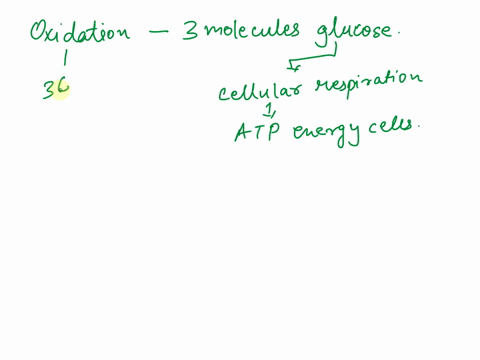 Oxidation — 3 molecules glucose.
cellular respiration
36
ATP energy cells.